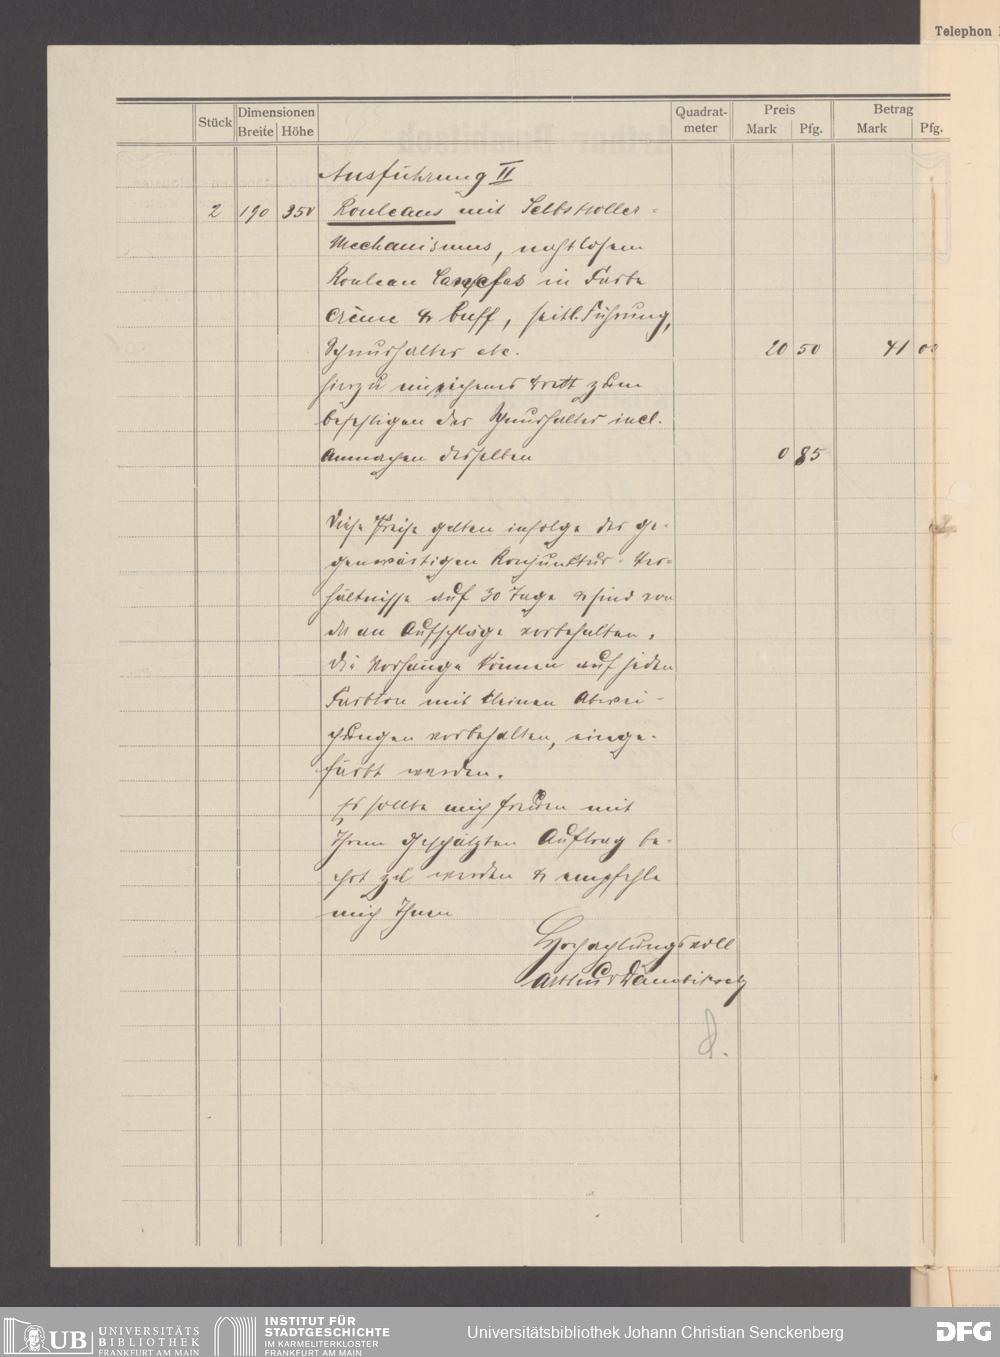 Telephon
Stück
Dimensionen
Breite
Höhe
Quadrat-
meter
Preis
Mark
Pfg.
Betrag
Mark
Pfg.
Ausführung II
2 190 350 Rouleaus mit Selbstroller-
Mechanismus, nahtlosem
Rouleau in Farbe
crème & buff, seitl. Führung,
Schnurhalter etc. 20 50 41 00
hierzu eichenes Brett zum
befestigen der Schnurhalter incl.
anmachen desselben 0 85
Diese Preise gelten infolge der ge-
genwärtigen Konjunktur-Ver-
hältnisse auf 30 Tage & sind von
da an Aufschläge vorbehalten.
Die Vorhänge können auf jeden
Farbton mit kleinen Abwei-
chungen vorbehalten, einge-
färbt werden.
Es sollte mich freuen mit
Ihrem geschätzten Auftrag be-
ehrt zu werden & empfehle
mich Ihnen
Hochachtungsvoll
Arthur Dambitsch
UB UNIVERSITÄTS
BIBLIOTHEK
FRANKFURT AM MAIN
INSTITUT FÜR
STADTGESCHICHTE
IM KARMELITERKLOSTER
FRANKFURT AM MAIN
Universitätsbibliothek Johann Christian Senckenberg
DFG